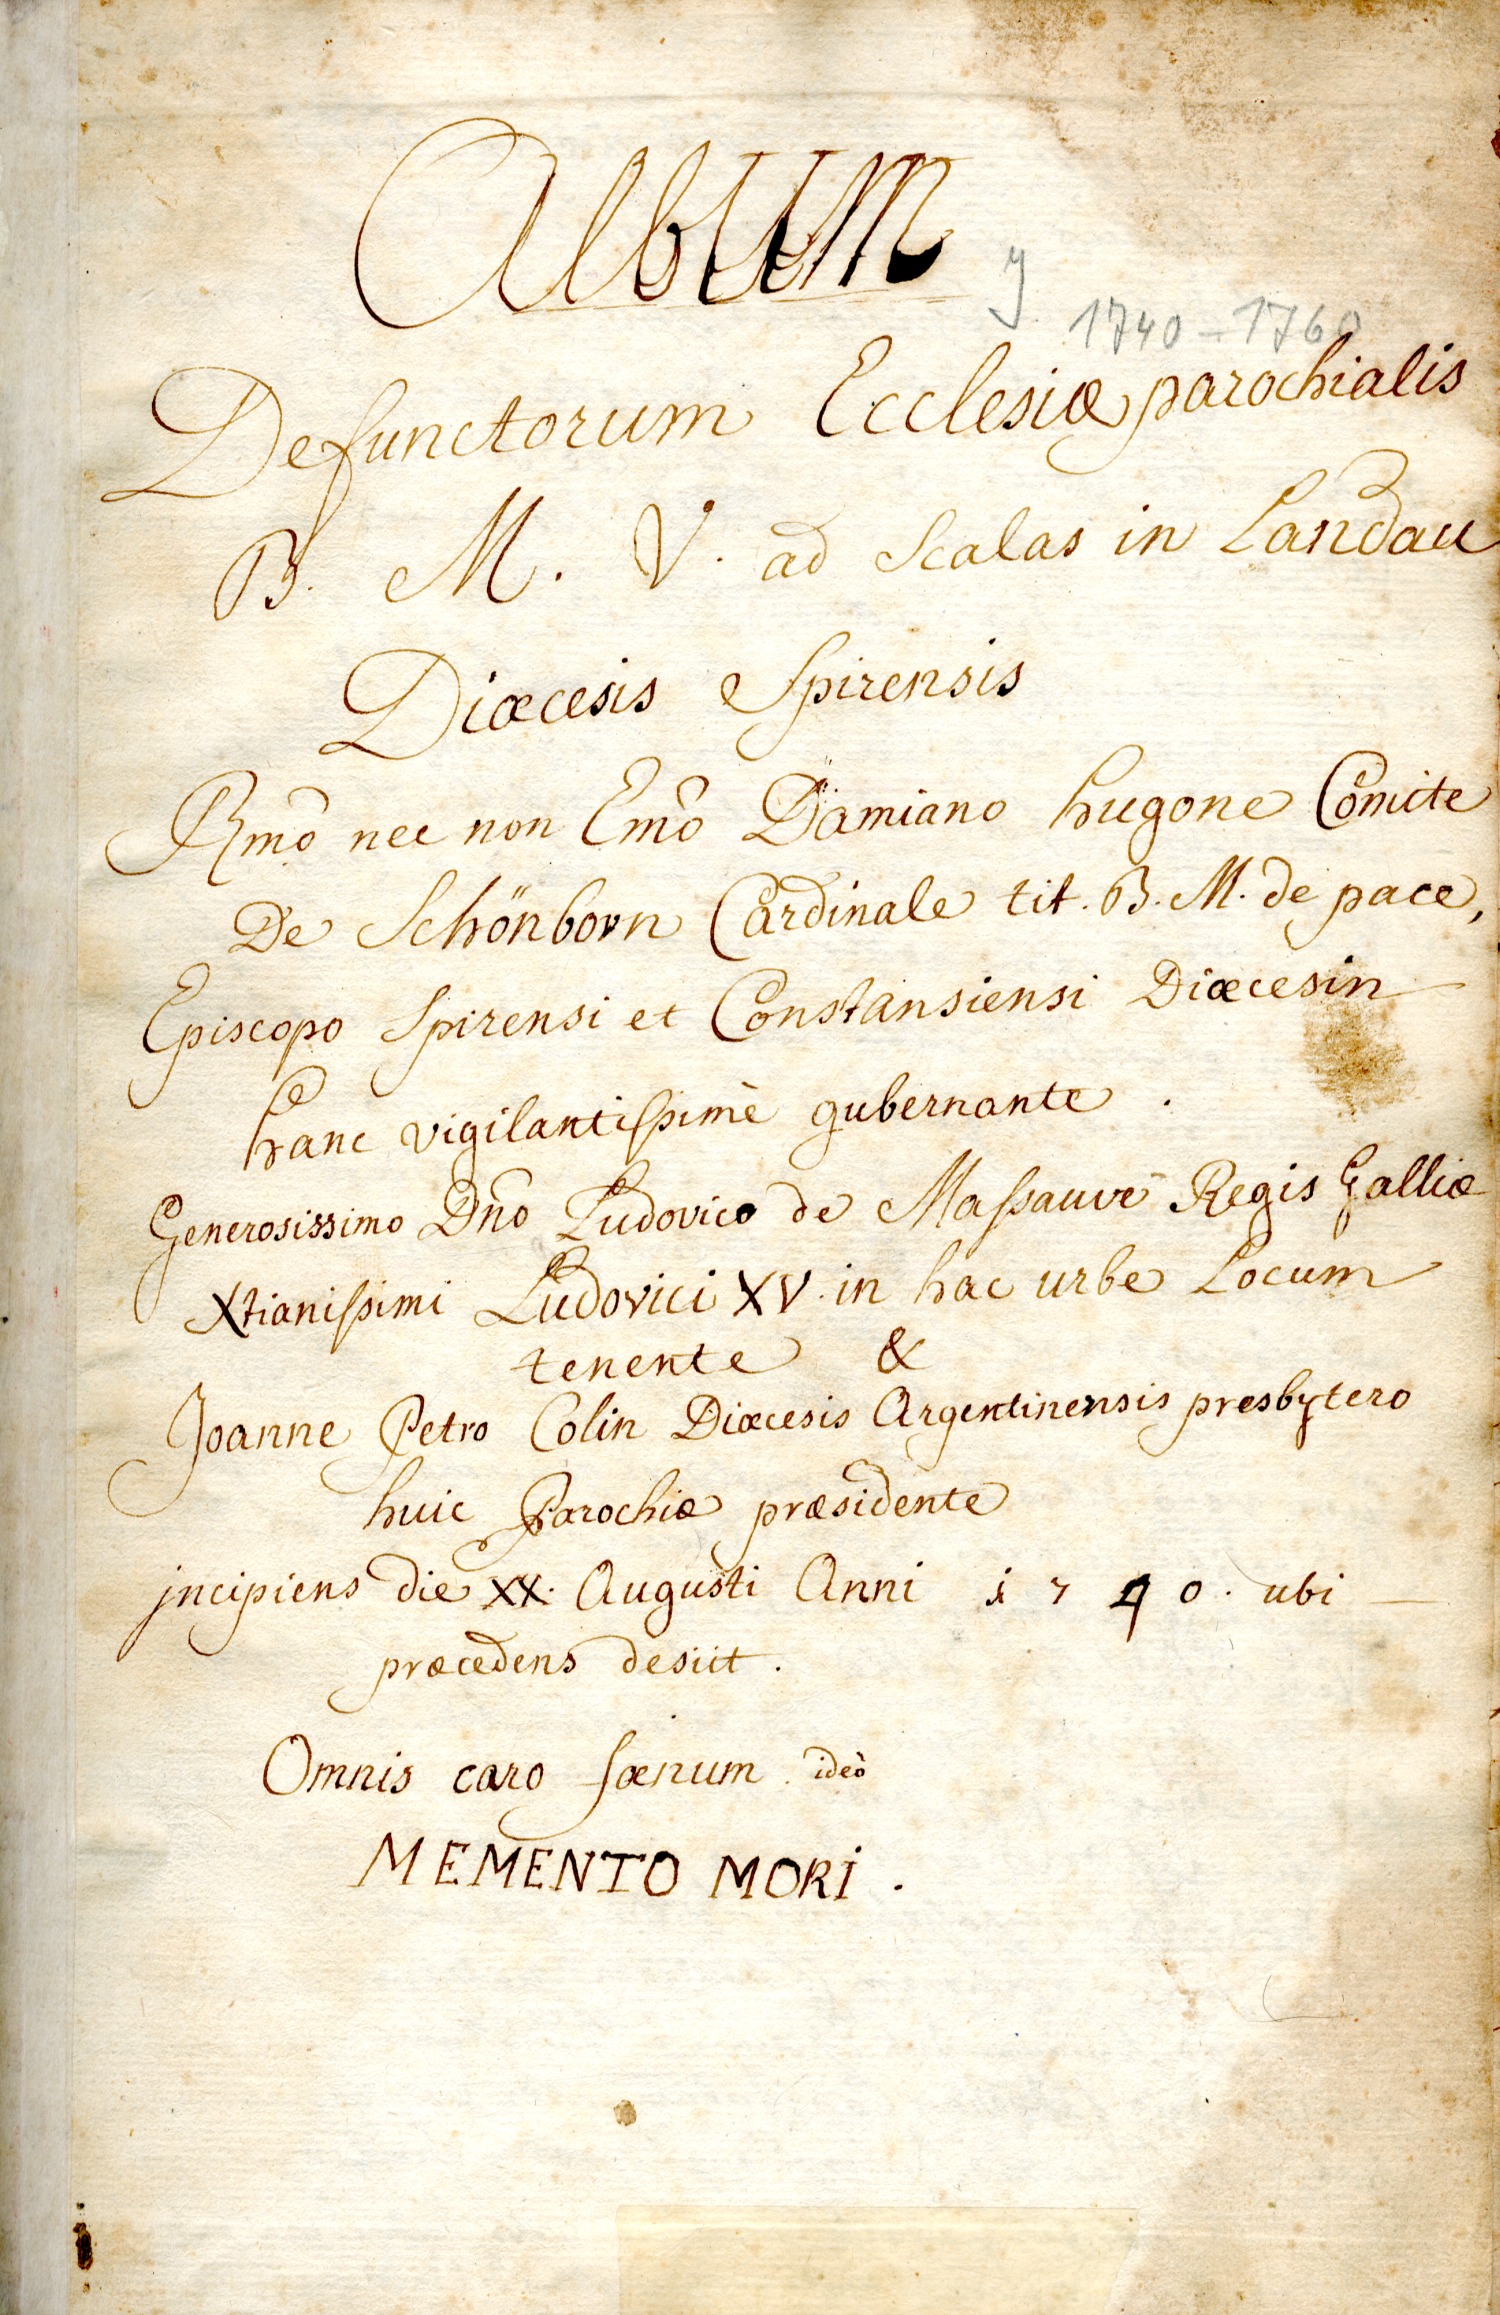 Album
y
1740-1760
Defunctorum Ecclesiæ parochialis
B. M. V. ad Scalas in Landau
Diœcesis Spirensis
Rmõ nec non Emõ Damiano hugone Comite
De Schönborn Cardinale tit. B. M. de pace,
Episcopo Spirensi et Constansiensi Diœcesin
hanc vigilantissimè gubernante .
Generosissimo Dño Ludovico de Massauve Regis Galliæ
Xtianissimi Ludovici XV. in hac urbe Locum
tenente &
Joanne Petro Colin Diœcesis Argentinensis presbytero
huic Parochiæ præsidente
jncipiens die XX. Augusti Anni 1740. ubi
præcedens desiit .
Omnis caro fœnum . ideò
MEMENTO MORI .